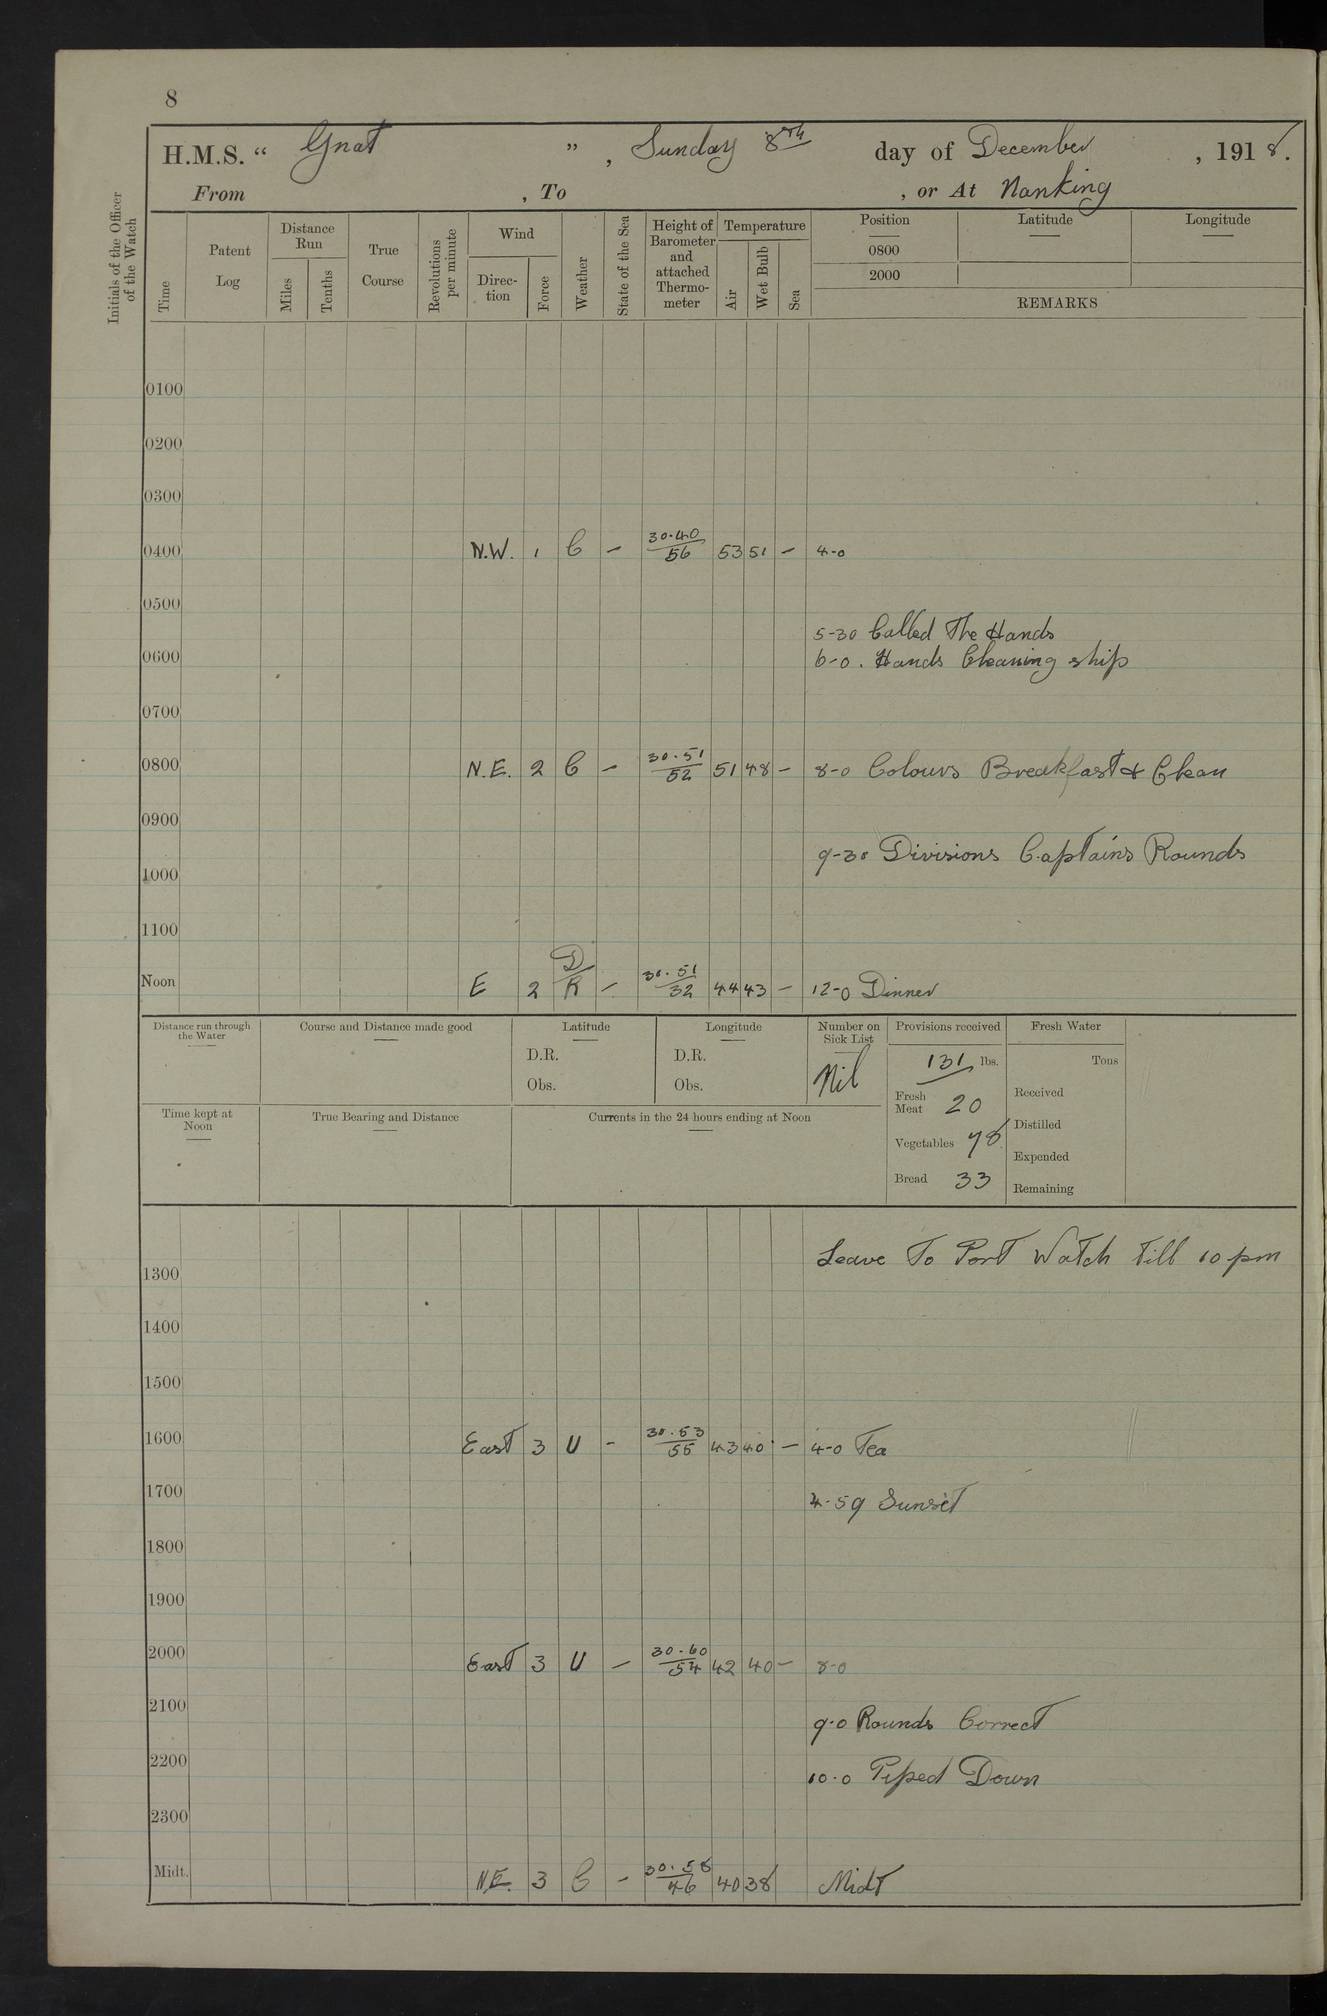 8
H.M.S. “ Gnat ” , Sunday 8th day of December , 1918.
From , To , or At Nanking
Initials of the Officer of the Watch
Time
Patent Log
Distance Run
Miles
Tenths
True Course
Revolutions per minute
Wind
Direc-tion
Force
Weather
State of the Sea
Height of Barometer and attached Thermo-meter
Temperature
Air
Wet Bulb
Sea
Position
Latitude
Longitude
0800
2000
REMARKS
0100
0200
0300
0400 N.W. 1 C – 30.40/56 53 51 – 4-0
0500
5-30 Called The Hands
0600 6-0. Hands Cleaning ship
0700
0800 N.E. 2 C – 30.51/52 51 48 – 8-0 Colours Breakfast & Clean
0900
9-30 Divisions Captains Rounds
1000
1100
Noon E 2 D/R – 30.51/32 44 43 – 12-0 Dinner
Distance run through the Water
Course and Distance made good
Latitude
D.R.
Obs.
Longitude
D.R.
Obs.
Number on Sick List
Nil
Provisions received
131 lbs.
Fresh Meat 20
Vegetables 78
Bread 33
Fresh Water
Tons
Received
Distilled
Expended
Remaining
Time kept at Noon
True Bearing and Distance
Currents in the 24 hours ending at Noon
Leave To Port Watch till 10 pm
1300
1400
1500
1600 East 3 U – 30.53/55 43 40 – 4-0 Tea
1700 4-59 Sunset
1800
1900
2000 East 3 U – 30-60/54 42 40 – 8-0
2100
9-0 Rounds Correct
2200
10-0 Piped Down
2300
Midt. N.E. 3 C – 30.58/46 40 38 Midt